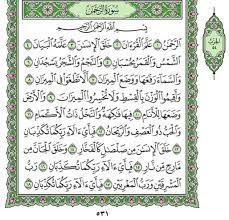 سُورَةُ الرَّحْمٰن
بِسْمِ اللَّهِ الرَّحْمَٰنِ الرَّحِيمِ
الرَّحْمَٰنُ ١ عَلَّمَ الْقُرْءَانَ ٢ خَلَقَ الْإِنسَٰنَ ٣ عَلَّمَهُ الْبَيَانَ ٤
الشَّمْسُ وَالْقَمَرُ بِحُسْبَانٍ ٥ وَالنَّجْمُ وَالشَّجَرُ يَسْجُدَانِ ٦
وَالسَّمَآءَ رَفَعَهَا وَوَضَعَ الْمِيزَانَ ٧ أَلَّا تَطْغَوْا فِي الْمِيزَانِ ٨
وَأَقِيمُوا الْوَزْنَ بِالْقِسْطِ وَلَا تُخْسِرُوا الْمِيزَانَ ٩ وَالْأَرْضَ
وَضَعَهَا لِلْأَنَامِ ١٠ فِيهَا فَٰكِهَةٌ وَالنَّخْلُ ذَاتُ الْأَكْمَامِ ١١
وَالْحَبُّ ذُو الْعَصْفِ وَالرَّيْحَانُ ١٢ فَبِأَيِّ ءَالَآءِ رَبِّكُمَا تُكَذِّبَانِ ١٣
خَلَقَ الْإِنسَٰنَ مِن صَلْصَٰلٍ كَالْفَخَّارِ ١٤ وَخَلَقَ الْجَآنَّ مِن
مَّارِجٍ مِّن نَّارٍ ١٥ فَبِأَيِّ ءَالَآءِ رَبِّكُمَا تُكَذِّبَانِ ١٦ رَبُّ
الْمَشْرِقَيْنِ وَرَبُّ الْمَغْرِبَيْنِ ١٧ فَبِأَيِّ ءَالَآءِ رَبِّكُمَا تُكَذِّبَانِ ١٨
٥٣١